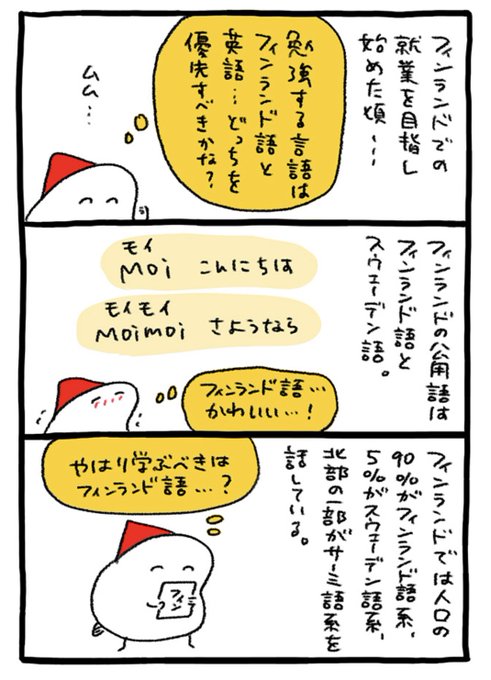 フィンランドでの
就業を目指し
始めた頃〜〜
勉強する言語は
フィンランド語と
英語…どっちを
優先すべきかな?
ムム…
フィンランドの公用語は
フィンランド語と
スウェーデン語。
モイ
moi こんにちは
モイモイ
moimoi さようなら
フィンランド語…
かわいい…!
フィンランドでは人口の
90%がフィンランド語系、
5%がスウェーデン語系、
北部の一部がサーミ語系を
話している。
やはり学ぶべきは
フィンランド語…?
フィン